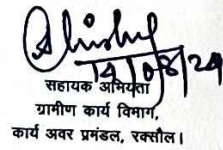 14/08/24
सहायक अभियंता
ग्रामीण कार्य विभाग,
कार्य अवर प्रमंडल, रक्सौल।